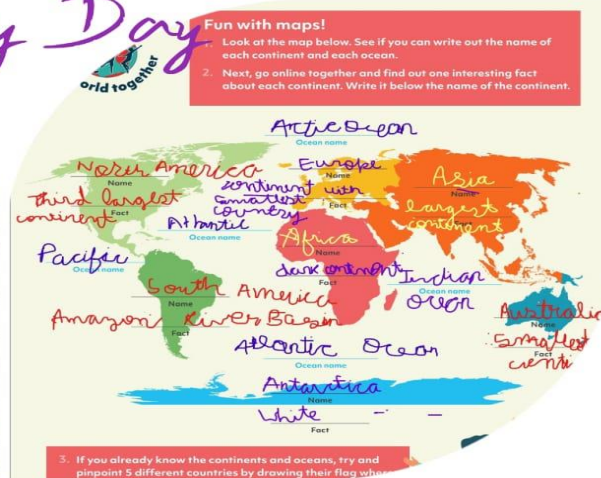 y Day
orld together
Fun with maps!
1. Look at the map below. See if you can write out the name of
each continent and each ocean.
2. Next, go online together and find out one interesting fact
about each continent. Write it below the name of the continent.
Arctic Ocean
Ocean name
North America
Name
Third largest
continent
Fact
Europe
Name
continent with
smallest
country
Fact
Asia
Name
largest
continent
Atlantic
Ocean name
Pacific
Ocean name
Africa
Name
dark continent
Fact
Indian
Ocean name
Ocean
South America
Name
Amazon River Basin
Fact
Australia
Name
Smallest
Fact
Atlantic Ocean
Ocean name
Antarctica
Name
White
Fact
3. If you already know the continents and oceans, try and
pinpoint 5 different countries by drawing their flag wher